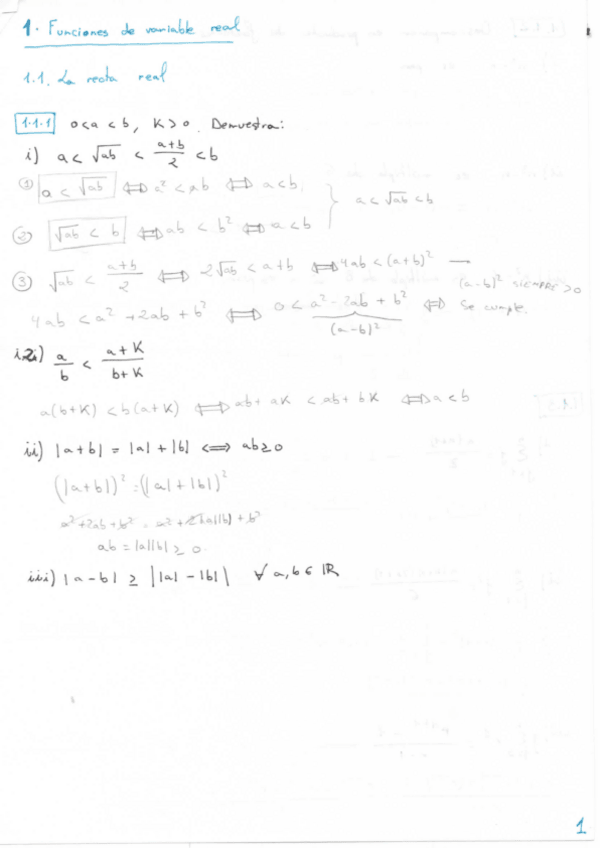 1. Funciones de variable real
1.1. La recta real
1.1.1 0<a<b, K>0. Demuestra:
i) a < √ab < (a+b)/2 < b
① a < √ab ⟺ a² < ab ⟺ a<b
② √ab < b ⟺ ab < b² ⟺ a<b
} a < √ab < b
③ √ab < (a+b)/2 ⟺ 2√ab < a+b ⟺ 4ab < (a+b)² →
4ab < a² + 2ab + b² ⟺ 0 < a² - 2ab + b² ⟺
(a-b)²
(a-b)² SIEMPRE >0
Se cumple.
i.2i) a/b < (a+K)/(b+K)
a(b+K) < b(a+K) ⟺ ab + aK < ab + bK ⟺ a<b
ii) |a+b| = |a| + |b| ⟺ ab≥0
(|a+b|)² = (|a|+|b|)²
a²+2ab+b² = a²+2|a||b|+b²
ab = |a||b| ≥ 0.
iii) |a-b| ≥ ||a|-|b|| ∀ a,b ∈ ℝ
1